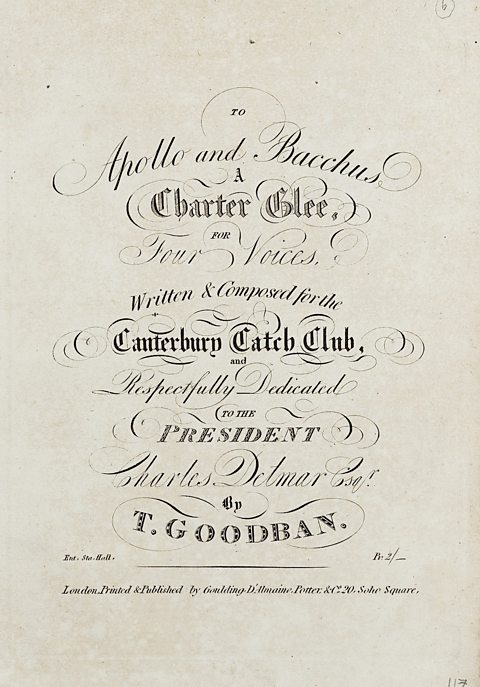 6
TO
Apollo and Bacchus,
A
Charter Glee,
FOR
Four Voices,
Written & Composed for the
Canterbury Catch Club,
and
Respectfully Dedicated
TO THE
PRESIDENT
Charles Delmar Esqr.
By
T. GOODBAN.
Ent. Sta. Hall. Pr. 2/_
London, Printed & Published by Goulding, D'Almaine, Potter, & Co. 20, Soho Square.
117